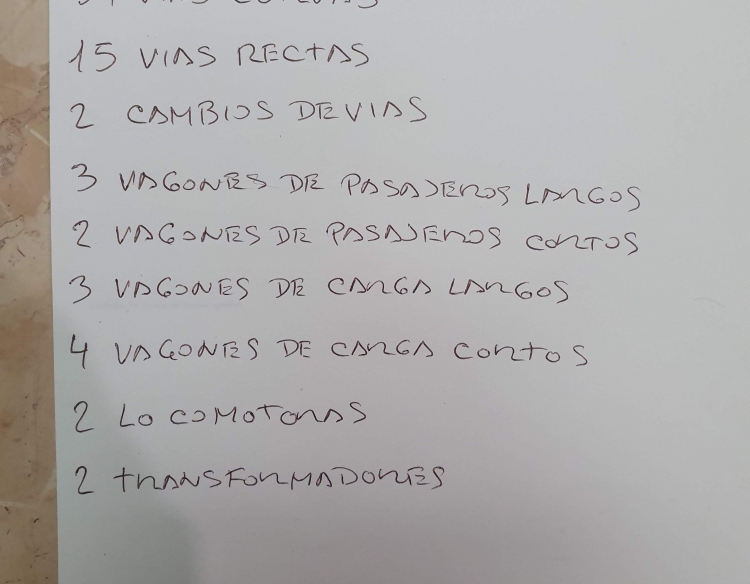 15 VIAS RECTAS
2 CAMBIOS DE VIAS
3 VAGONES DE PASAJEROS LARGOS
2 VAGONES DE PASAJEROS CORTOS
3 VAGONES DE CARGA LARGOS
4 VAGONES DE CARGA CORTOS
2 LOCOMOTORAS
2 TRANSFORMADORES